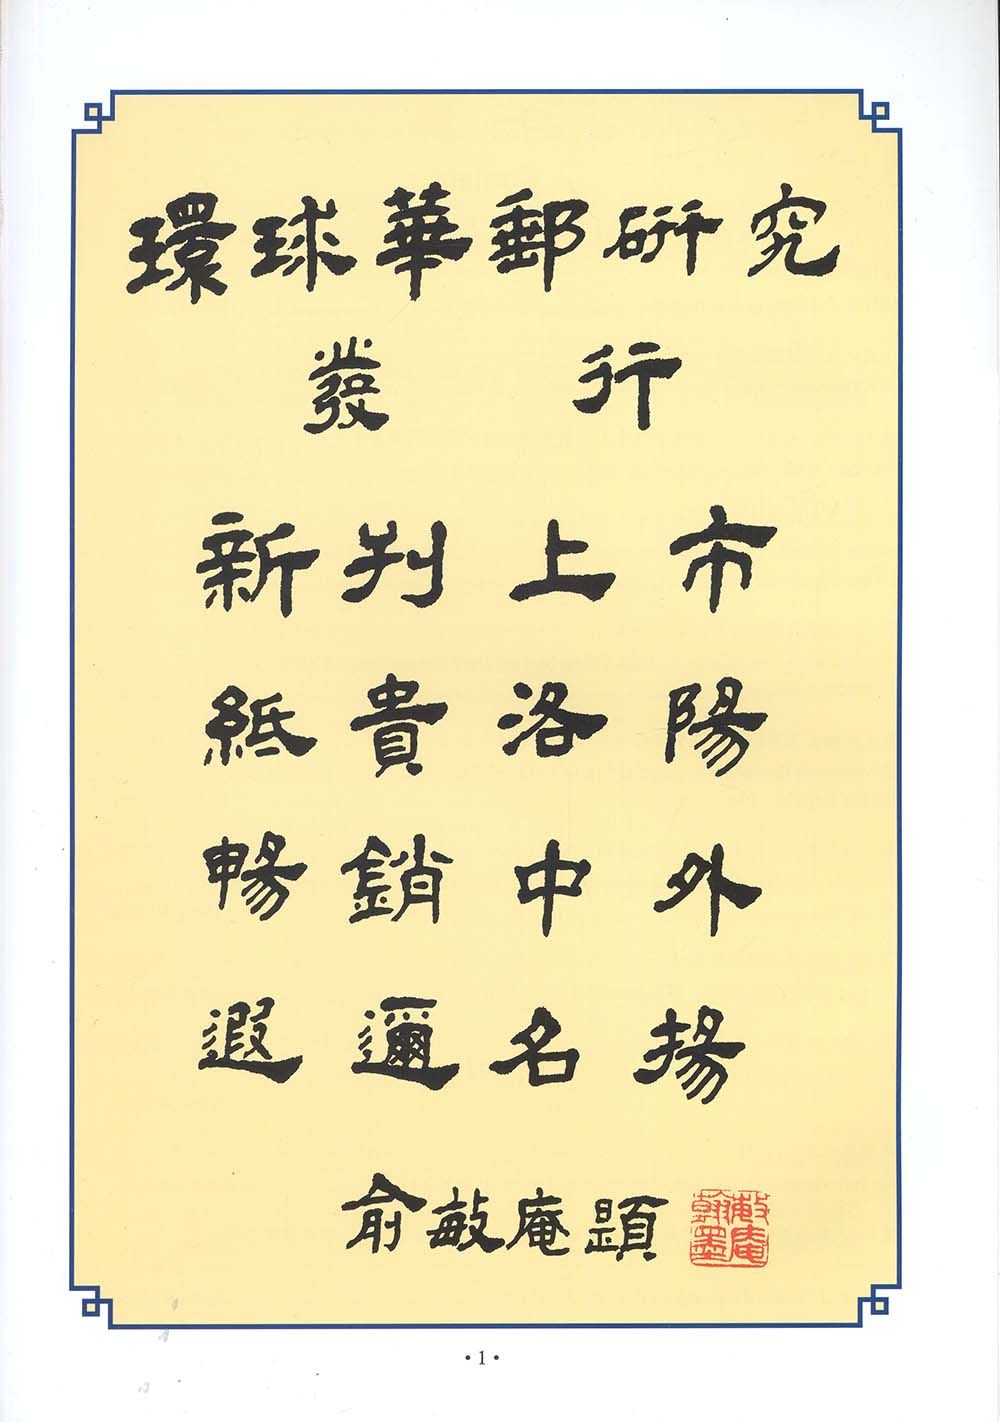 環球華郵研究
發行
新刊上市
紙貴洛陽
暢銷中外
遐邇名揚
俞敏庵題
敏庵翰墨
• 1 •